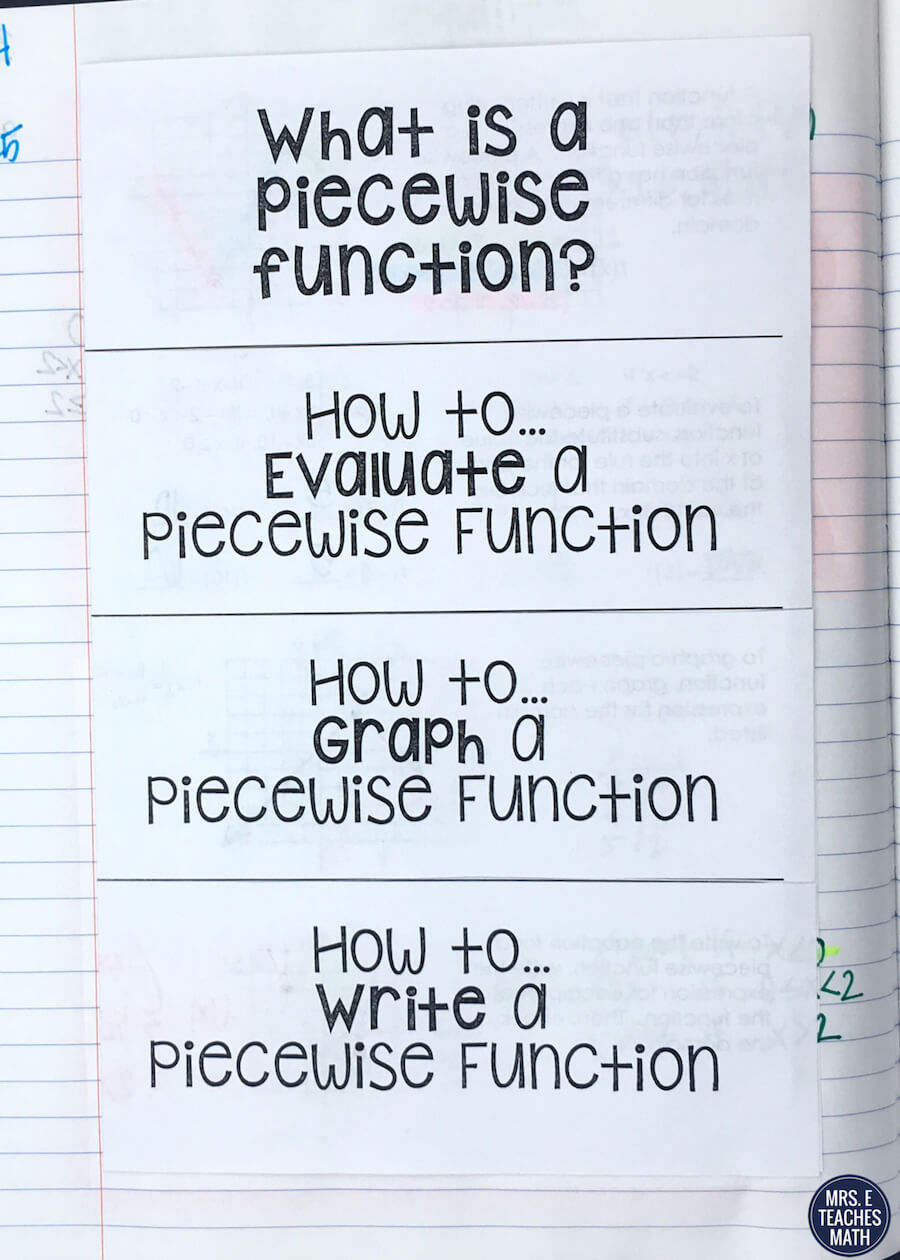 What is a
piecewise
function?
How to...
Evaluate a
Piecewise Function
How to...
Graph a
Piecewise Function
How to...
Write a
Piecewise Function
<2
2
5
MRS. E
TEACHES
MATH